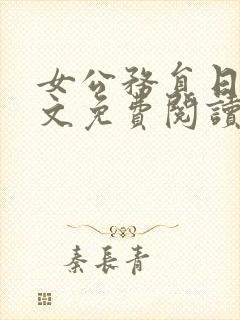 女公務員日
文免費閱讀
秦長青